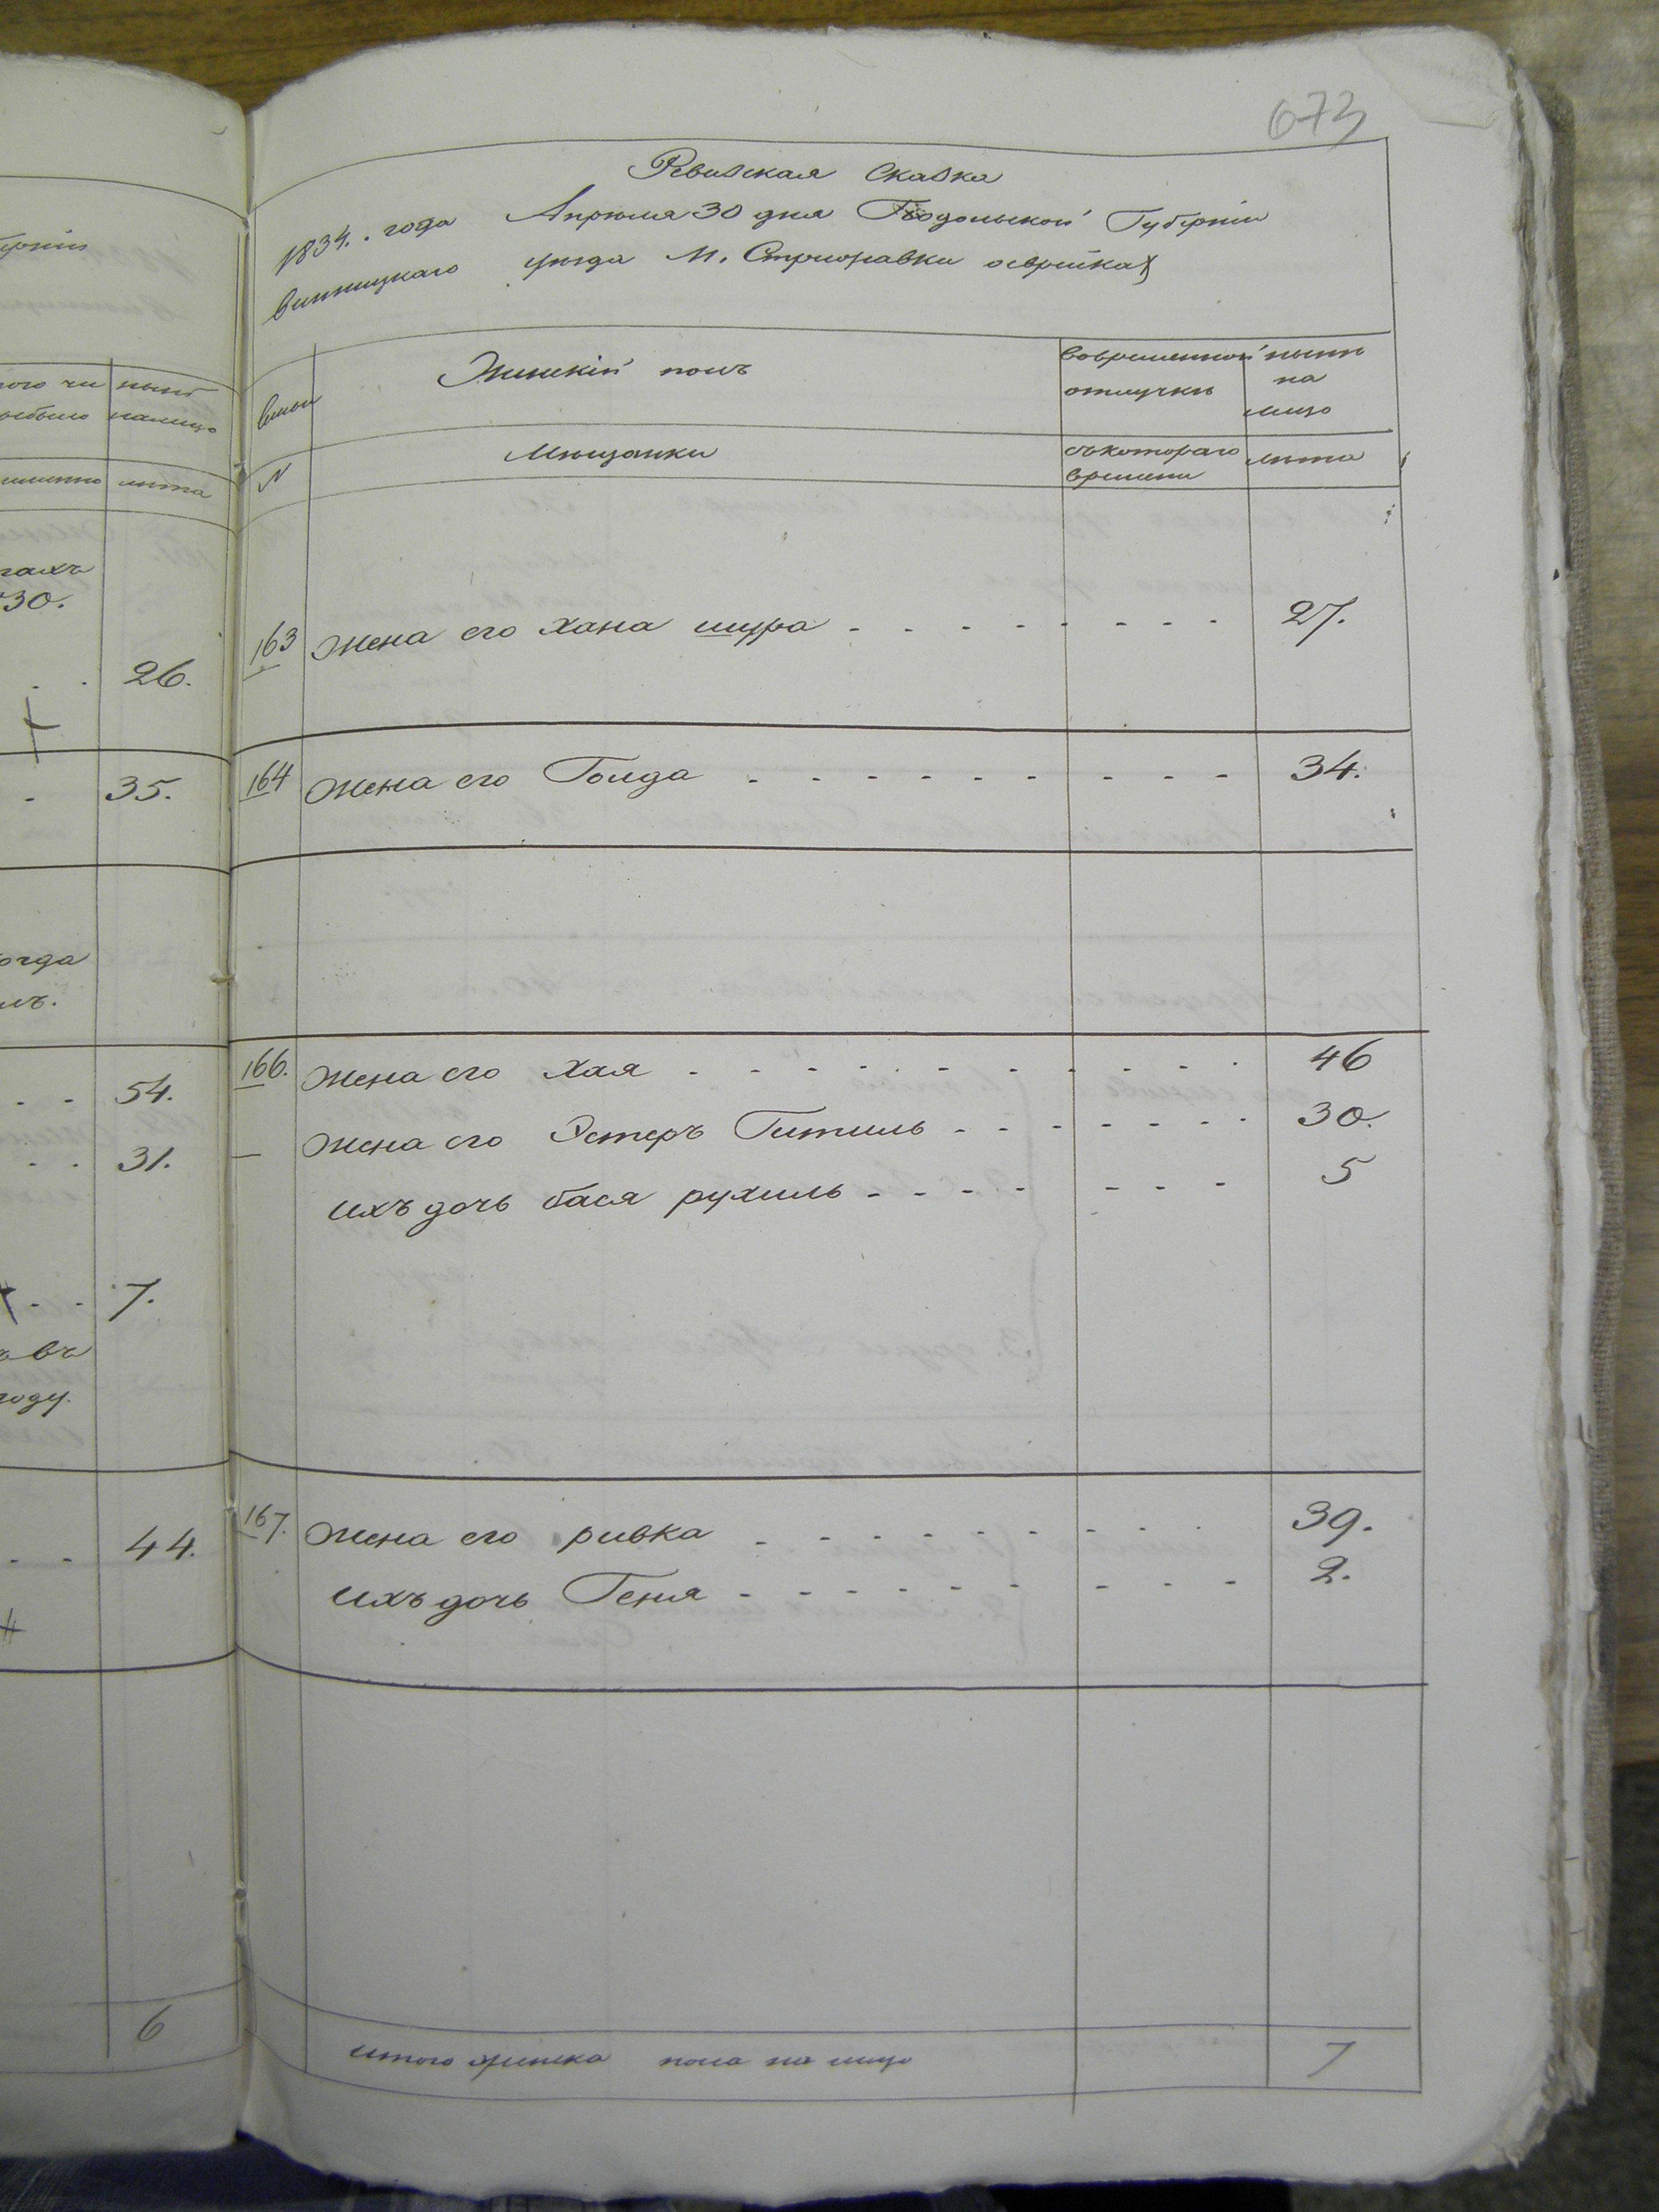 ерніи
ого чи ныне
выбыло налицо
именно лета
гахъ
30.
26.
35.
огда
лъ.
54.
31.
7.
въ
году.
44.
6
673
Ревизская Сказка
1834. года Апреля 30 дня Подольской Губерніи
винницкаго уезда М. Стрижавки оеврейках
Женскій полъ
вовременной отлучке
ныне на лицо
семьи
Мещанки
N
съкотораго времени
лета
163 жена его хана шура 27.
164 жена его Голда 34.
166. жена его хая 46
— жена его Эстеръ Гитиль 30.
ихъ дочь бася рухиль 5
167. жена его ривка 39.
ихъ дочь Геня 2.
итого женска пола на лицо 7